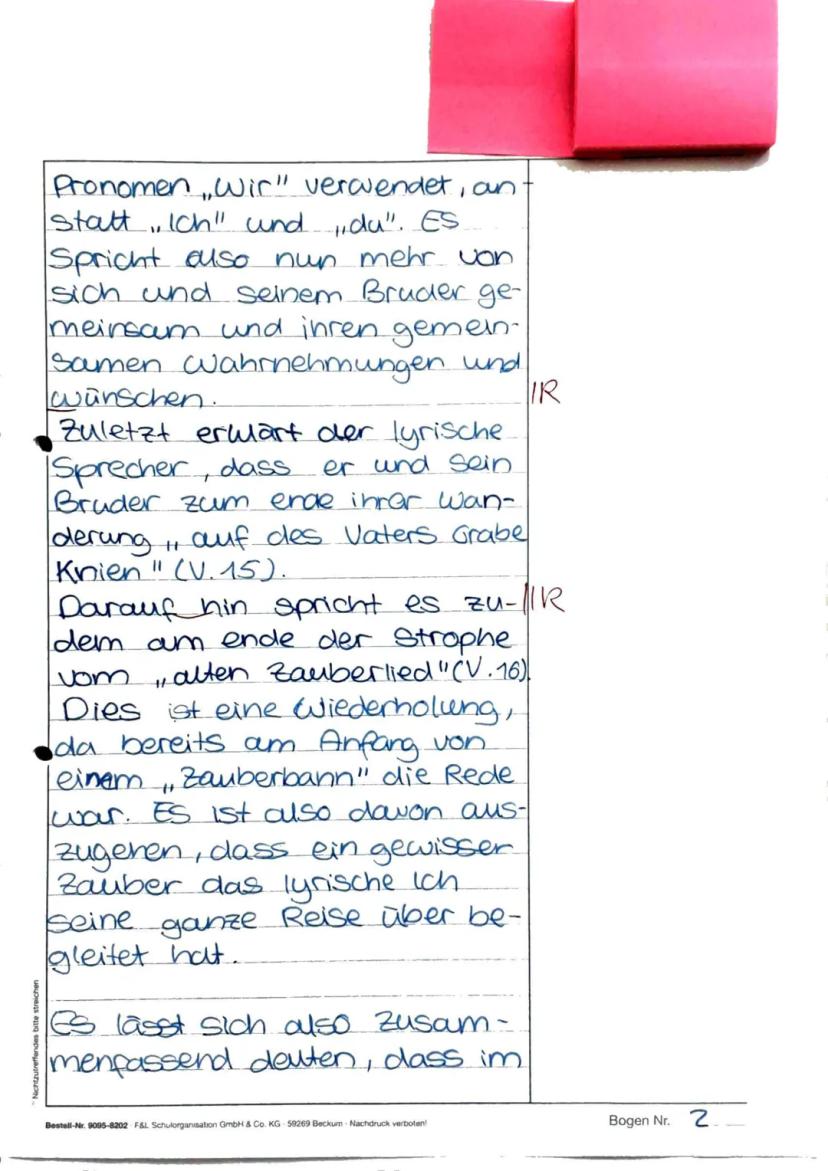 Pronomen „Wir" verwendet, an-
statt „Ich" und „du". Es
Spricht also nun mehr von
sich und seinem Bruder ge-
meinsam und ihren gemein-
samen Wahrnehmungen und
wünschen.
IR
Zuletzt erklärt der lyrische
Sprecher, dass er und sein
Bruder zum ende ihrer Wan-
derung „auf des Vaters Grabe
Knien" (V. 15).
Darauf hin spricht es zu-
IIR
dem am ende der Strophe
vom „alten Zauberlied" (V. 16).
Dies ist eine Wiederholung,
da bereits am Anfang von
einem „Zauberbann" die Rede
war. Es ist also davon aus-
zugehen, dass ein gewisser
Zauber das lyrische Ich
seine ganze Reise über be-
gleitet hat.
Es lässt sich also zusam-
menfassend deuten, dass im
Nichtzutreffendes bitte streichen
Bestell-Nr. 9095-8202 · F&L Schulorganisation GmbH & Co. KG · 59269 Beckum · Nachdruck verboten!
Bogen Nr. 2